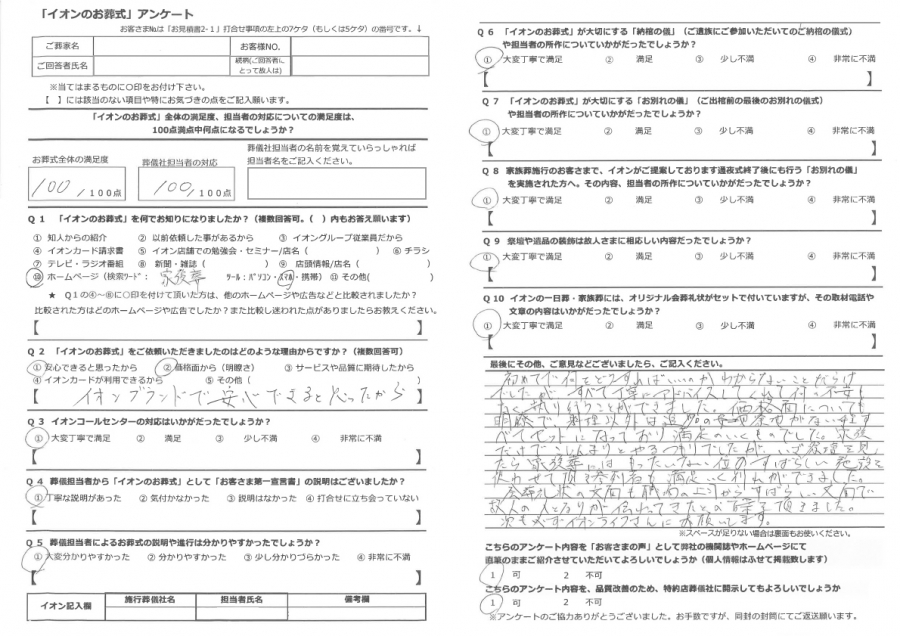 「イオンのお葬式」アンケート
お客さま№は「お見積書2-1」打合せ事項の左上の7ケタ（もしくは5ケタ）の番号です。↓
ご葬家名
お客様NO.
ご回答者氏名
続柄(ご回答者にとって故人は)
※当てはまるものに○印をお付け下さい。
【　】には該当のない項目や特にお気づきの点をご記入願います。
「イオンのお葬式」全体の満足度、担当者の対応についての満足度は、
100点満点中何点になるでしょうか？
お葬式全体の満足度
100/100点
葬儀社担当者の対応
100/100点
葬儀社担当者の名前を覚えていらっしゃれば
担当者名をご記入ください。
Q 1　「イオンのお葬式」を何でお知りになりましたか？（複数回答可。（　）内もお答え願います）
① 知人からの紹介　② 以前依頼した事があるから　③ イオングループ従業員だから
④ イオンカード請求書　⑤ イオン店舗での勉強会・セミナー/店名（　）　⑥ チラシ
⑦ テレビ・ラジオ番組　⑧ 新聞・雑誌（　）　⑨ 店頭情報/店名（　）
⑩ ホームページ（検索ワード：　家族葬　ツール：パソコン・スマホ・携帯）　⑪ その他(　)
★ Q１の④～⑩に○印を付けて頂いた方は、他のホームページや広告などと比較されましたか？
比較された方はどのホームページや広告でしたか？また比較し迷われた点がありましたらお教えください。
【　】
Q 2　「イオンのお葬式」をご依頼いただきましたのはどのような理由からですか？（複数回答可）
① 安心できると思ったから　② 価格面から（明瞭さ）　③ サービスや品質に期待したから
④ イオンカードが利用できるから　⑤ その他（　）
【　イオンブランドで安心できると思ったから　】
Q 3　イオンコールセンターの対応はいかがだったでしょうか？
① 大変丁寧で満足　② 満足　③ 少し不満　④ 非常に不満
【　】
Q 4　葬儀担当者から「イオンのお葬式」として「お客さま第一宣言書」の説明はございましたか？
① 丁寧な説明があった　② 気付かなかった　③ 説明はなかった　④ 打合せに立ち会っていない
【　】
Q 5　葬儀担当者によるお葬式の説明や進行は分かりやすかったでしょうか？
① 大変分かりやすかった　② 分かりやすかった　③ 少し分かりづらかった　④ 非常に不満
【　】
イオン記入欄
施行葬儀社名
担当者氏名
備考欄
Q 6　「イオンのお葬式」が大切にする「納棺の儀」（ご遺族にご参加いただいてのご納棺の儀式）
や担当者の所作についていかがだったでしょうか？
① 大変丁寧で満足　② 満足　③ 少し不満　④ 非常に不満
【　】
Q 7　「イオンのお葬式」が大切にする「お別れの儀」（ご出棺前の最後のお別れの儀式）
や担当者の所作についていかがだったでしょうか？
① 大変丁寧で満足　② 満足　③ 少し不満　④ 非常に不満
【　】
Q 8　家族葬施行のお客さまで、イオンがご提案しております通夜式終了後にも行う「お別れの儀」
を実施された方へ。その内容、担当者の所作についていかがだったでしょうか？
① 大変丁寧で満足　② 満足　③ 少し不満　④ 非常に不満
【　】
Q 9　祭壇や遺品の装飾は故人さまに相応しい内容だったでしょうか？
① 大変丁寧で満足　② 満足　③ 少し不満　④ 非常に不満
【　】
Q 10　イオンの一日葬・家族葬には、オリジナル会葬礼状がセットで付いていますが、その取材電話や
文章の内容はいかがだったでしょうか？
① 大変丁寧で満足　② 満足　③ 少し不満　④ 非常に不満
【　】
最後にその他、ご意見などございましたら、ご記入ください。
初めてで何をどうすればいいのかわからないことだらけ
でしたが、すべて丁寧にアドバイスしてくれて何の不安も
なく執り行うことができました。価格面についても
明瞭で料理以外は追加の費用がない
べてセットになっており満足のいくものでした。家族
だけでこじんまりとやるつもりでしたが、いざ会場を見
たら家族葬にはもったいない位のすばらしい施設で
来て頂き参列者も満足いくことができました。
会葬礼状の文面も すばらしい文面で
故人の人となりが伝わってきたとの 頂きました。
次も必ずイオンライフさんにお願いします。
※スペースが足りない場合は裏面もお使いください。
こちらのアンケート内容を「お客さまの声」として弊社の機関誌やホームページにて
直筆のままご紹介させていただいてよろしいでしょうか（個人情報はふせて掲載致します）
1　可　2　不可
こちらのアンケート内容を、品質改善のため、特約店葬儀社に開示してもよろしいでしょうか
1　可　2　不可
※アンケートのご協力ありがとうございました。お手数ですが、同封の封筒にてご返送願います。